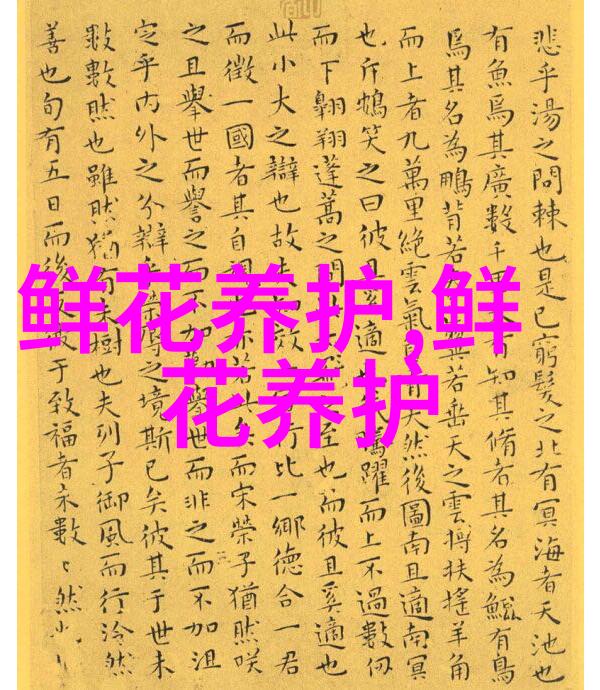 悲乎湯之問棘也是已窮髮之北有冥海者天池也
有魚焉其廣數千里有知其脩者其名為鯤有鳥
焉其名為鵬背若翼若垂天之雲摶扶搖羊角
而上者九萬里絕雲氣天然後圖南且適南冥
也斥鴳笑之曰彼且奚適躍而上不過數仞
而下翱翔蓬蒿之間至也而彼且奚適也
此小大之辯也故夫行比一鄉德合一君
而徵一國者其自若此矣而宋榮子猶然咲
之且舉世而譽之而不加勸舉世而非之而不加沮
定乎內外之分辯乎榮辱之境斯已矣彼其于世未
數數然也雖然猶有未樹也夫列子御風而行泠然
善也旬有五日而後反彼于致福者未數〻然也
鲜花养护,鲜
花养护